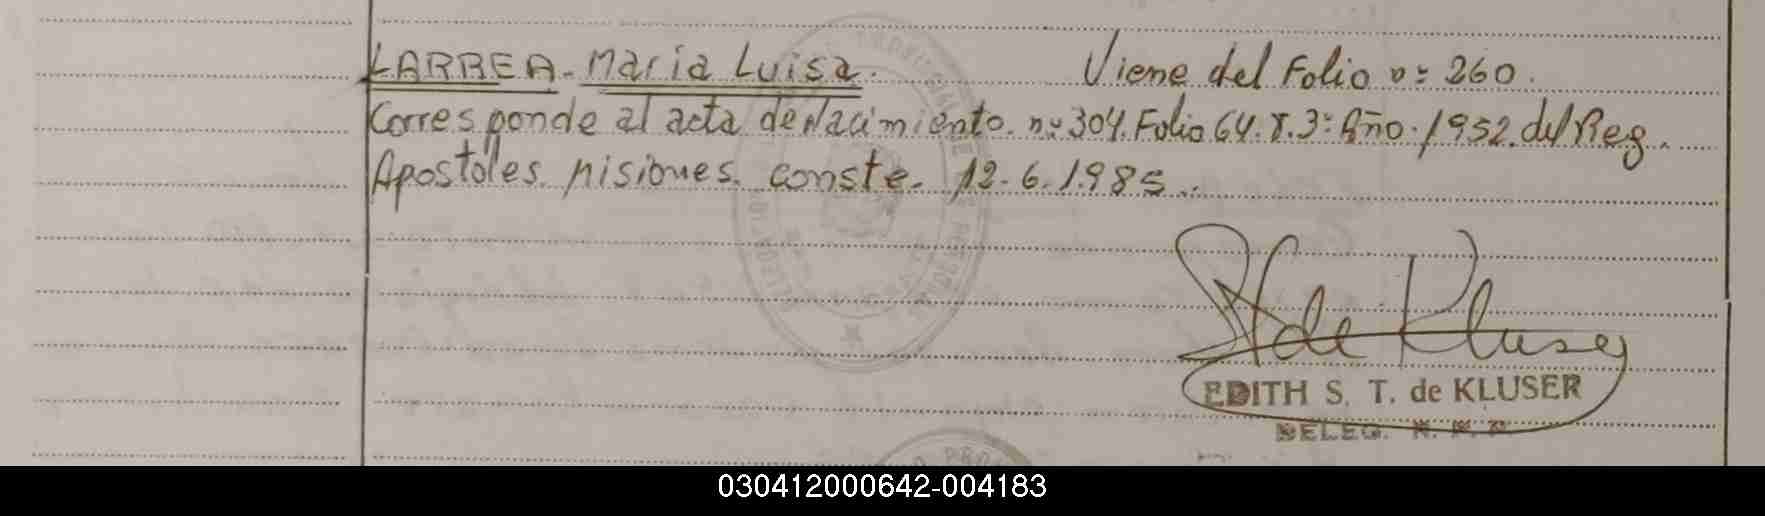 LARREA - Maria Luisa. Viene del Folio nº 260.
Corresponde al acta de Nacimiento. nº 304. Folio 64. T. 3º Año. 1952. del Reg.
Apostoles. Misiones. conste. 12-6-1985.
de Kluser
EDITH S. T. de KLUSER
DELEG. R. P. P.
030412000642-004183